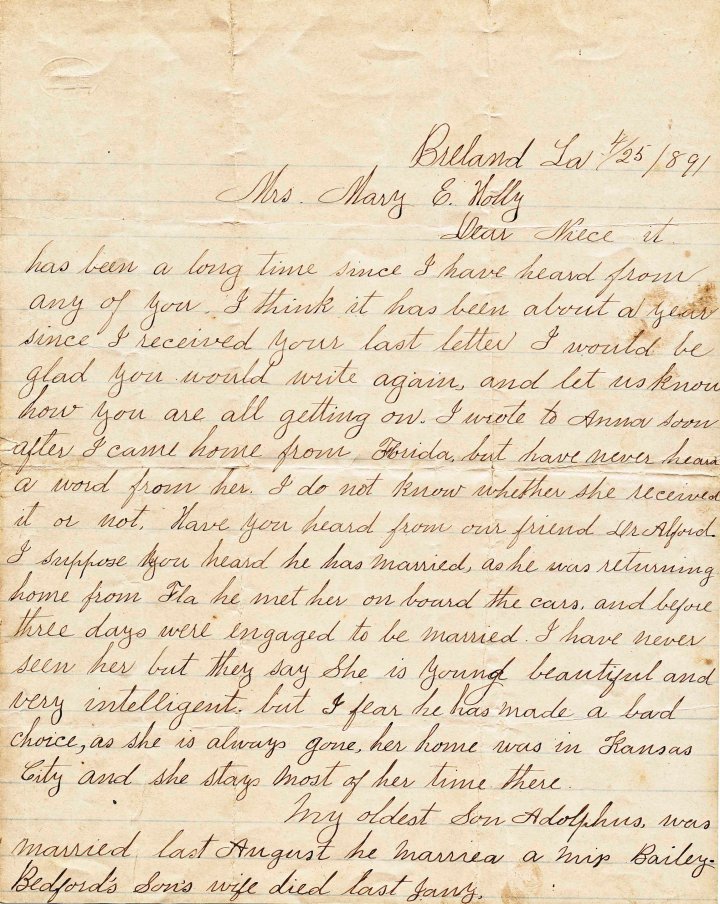 Breland La 4/25/1891
Mrs. Mary E. Holly
Dear Niece it
has been a long time since I have heard from
any of you. I think it has been about a year
since I received your last letter I would be
glad you would write again, and let us know
how you are all getting on. I wrote to Anna soon
after I came home from Florida, but have never heard
a word from her. I do not know whether she received
it or not. Have you heard from our friend Dr Alford.
I suppose you heard he has married, as he was returning
home from Fla he met her on board the cars, and before
three days were engaged to be married. I have never
seen her but they say She is young beautiful and
very intelligent. but I fear he has made a bad
choice, as she is always gone, her home was in Kansas
City and she stays most of her time there.
My oldest Son Adolphus, was
married last August he married a miss Bailey.
Bedford's Son's wife died last Jany.